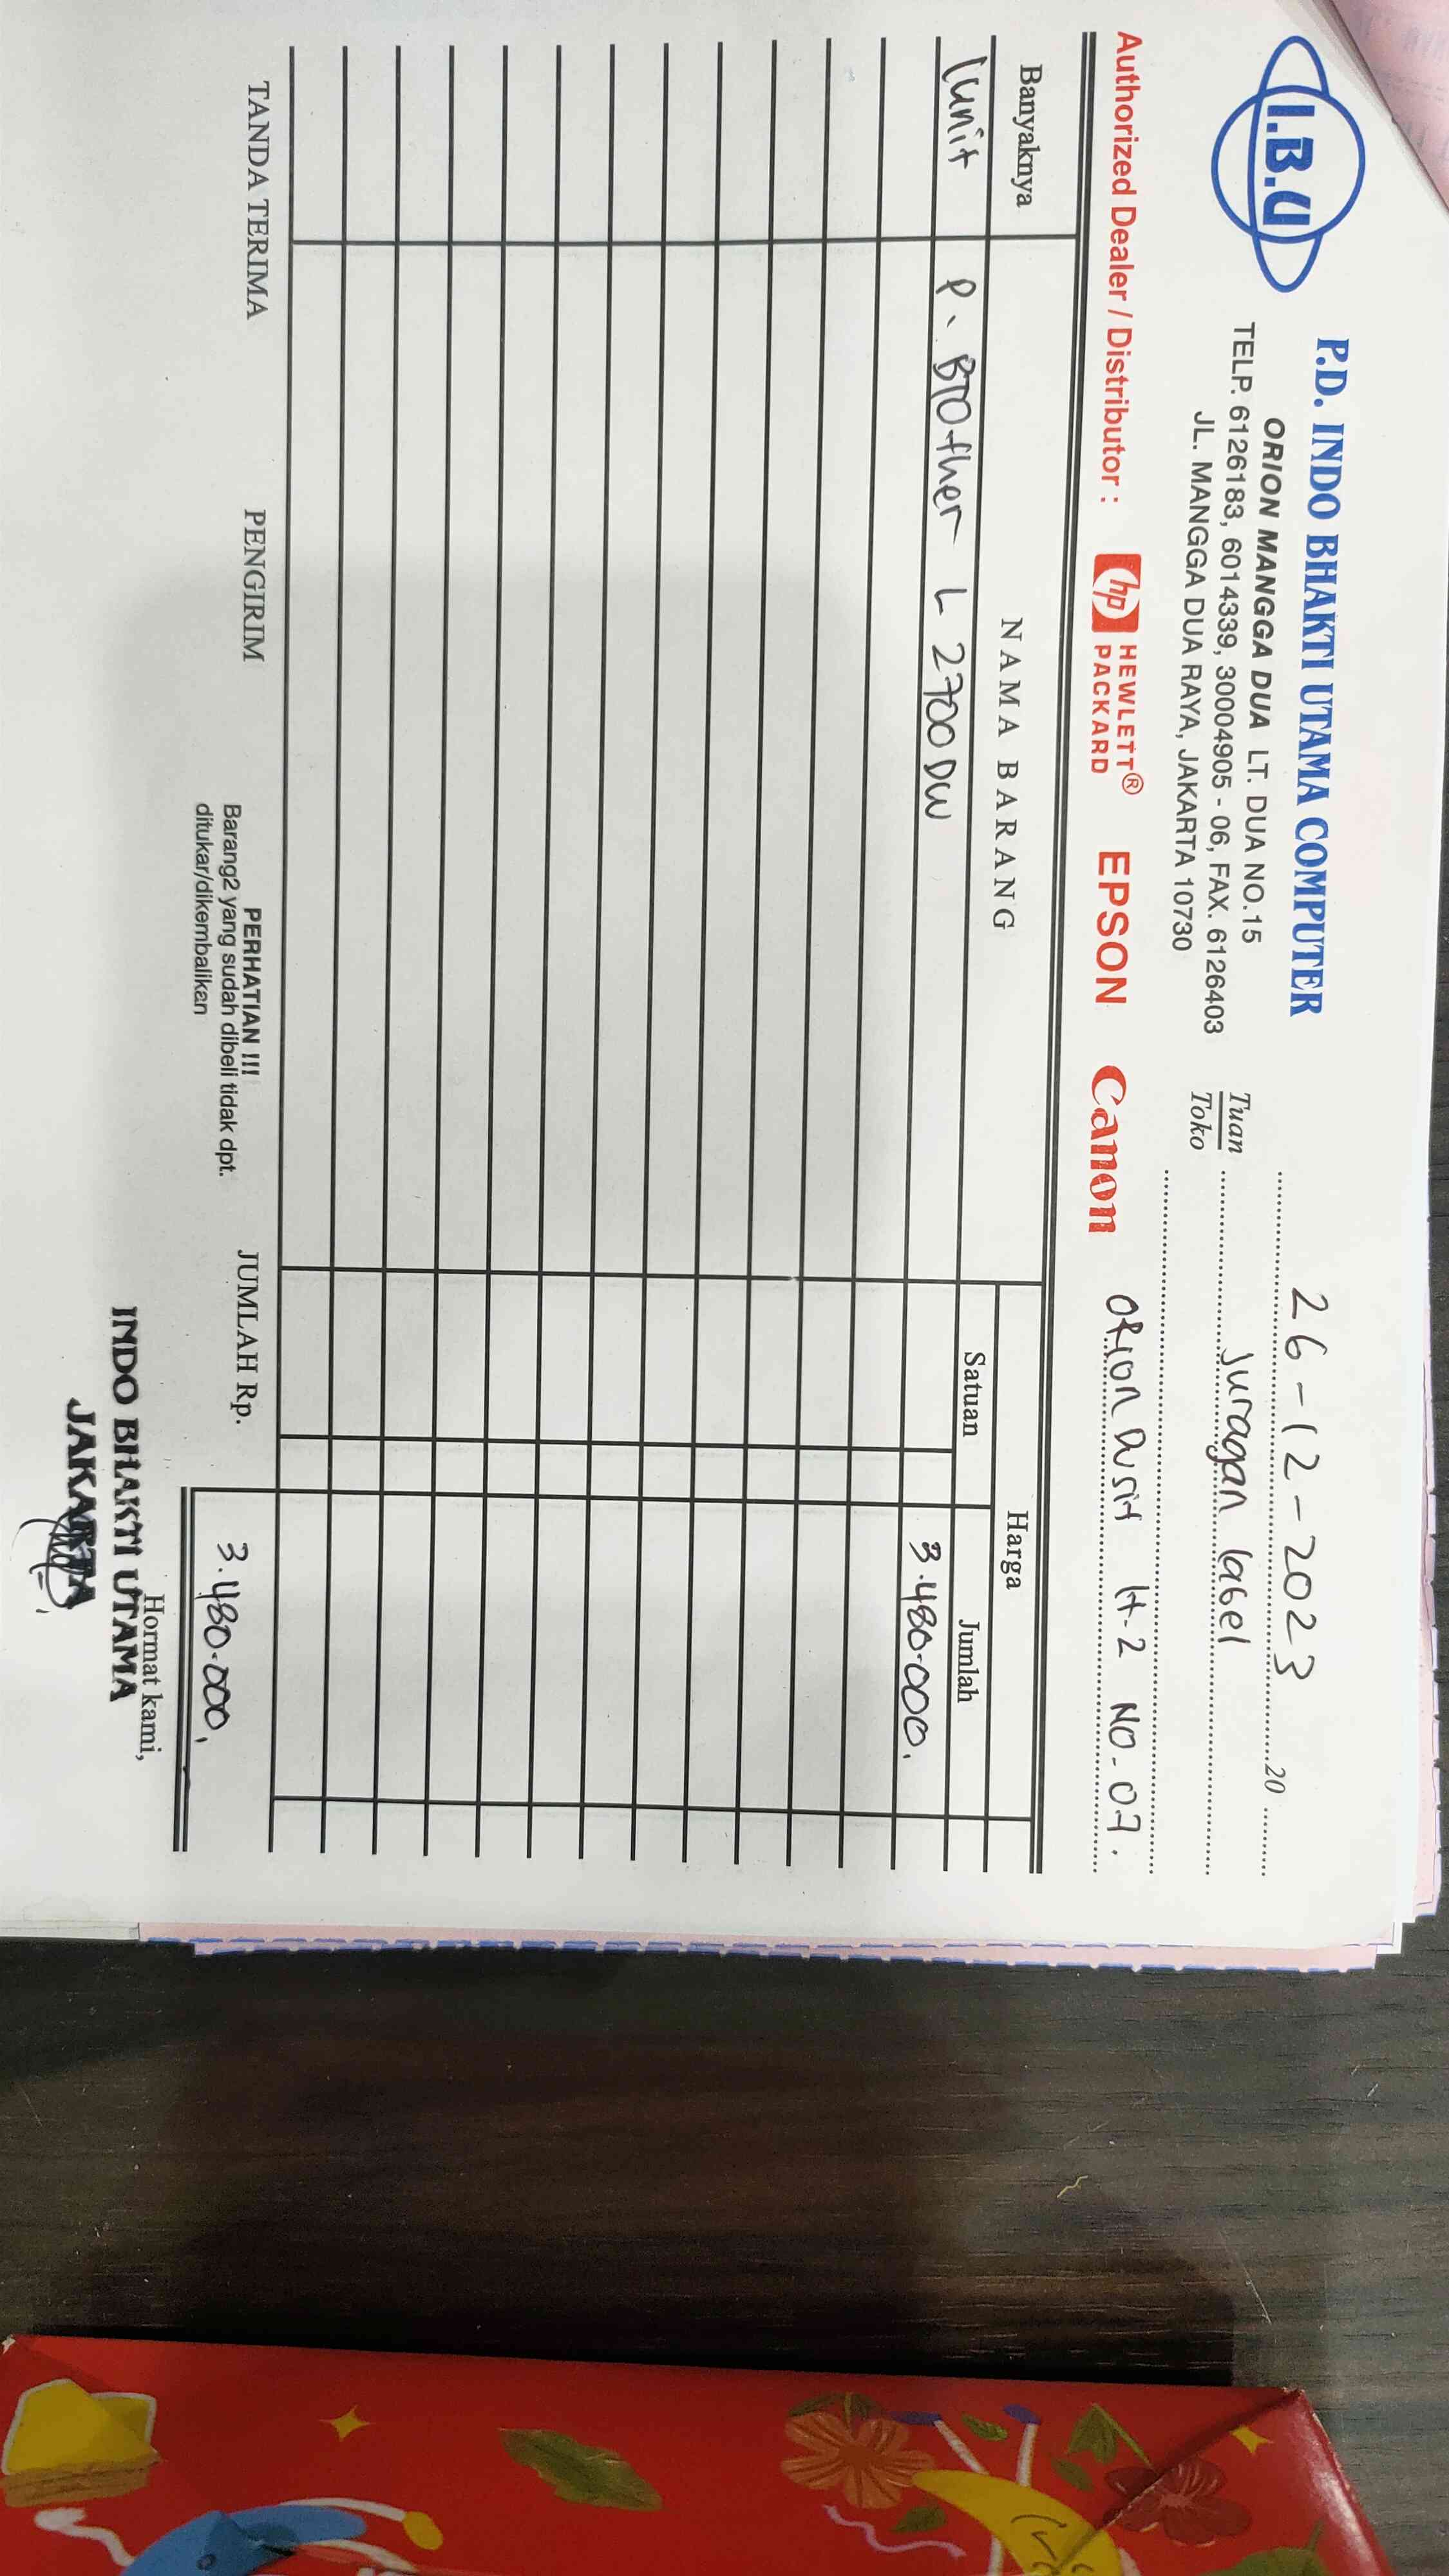 I.B.U
P.D. INDO BHAKTI UTAMA COMPUTER
ORION MANGGA DUA LT. DUA NO.15
TELP. 6126183, 6014339, 30004905 - 06, FAX. 6126403
JL. MANGGA DUA RAYA, JAKARTA 10730
26-12-2023 20
Tuan
Toko
Juragan label
Orion Dusit lt.2 NO-07.
Authorized Dealer / Distributor : hp HEWLETT® PACKARD EPSON Canon
Banyaknya NAMA BARANG Harga
Satuan Jumlah
1 unit P. Brother L 2700 DW 3.480.000.
TANDA TERIMA PENGIRIM JUMLAH Rp. 3.480.000,
PERHATIAN !!!
Barang2 yang sudah dibeli tidak dpt.
ditukar/dikembalikan
Hormat kami,
INDO BHAKTI UTAMA
JAKARTA